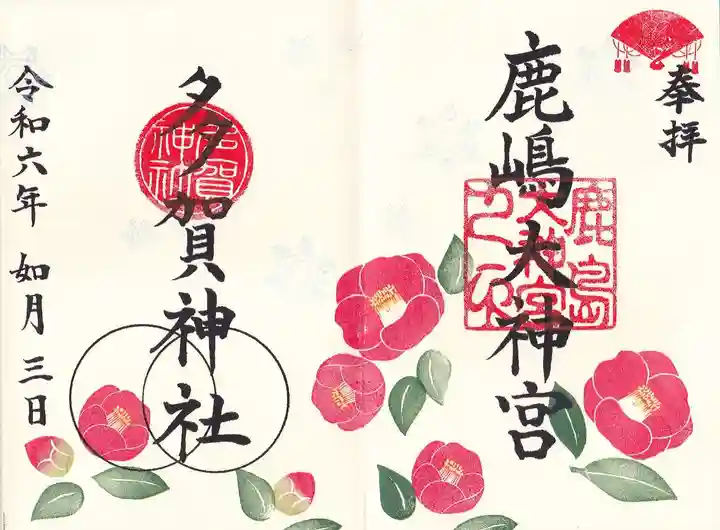 奉拝
鹿嶋大神宮
鹿島
大神宮
多賀神社
多賀
神社
令和六年 如月三日